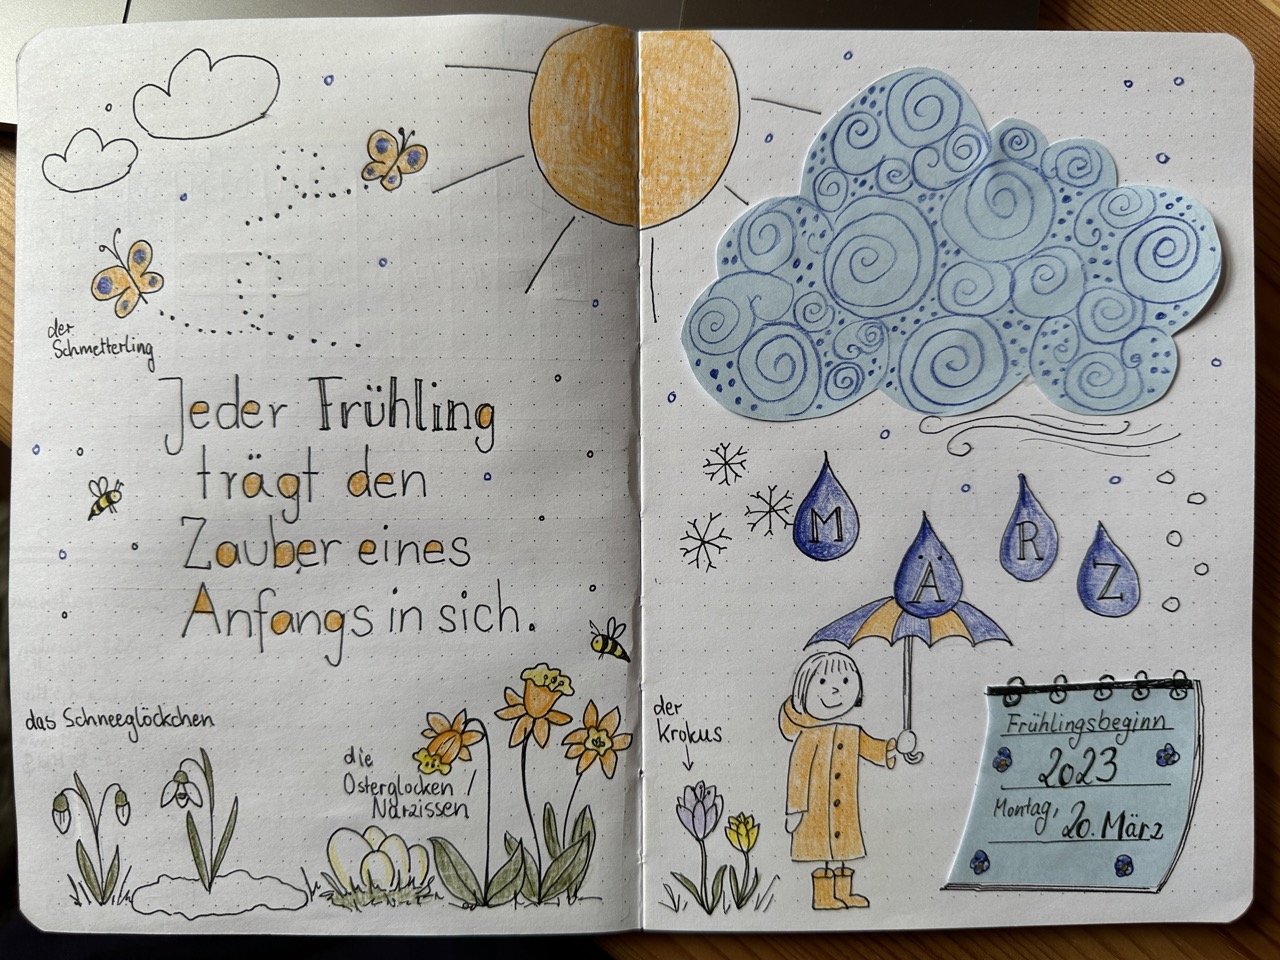 der
Schmetterling
Jeder Frühling
trägt den
Zauber eines
Anfangs in sich.
das Schneeglöckchen
die
Osterglocken /
Narzissen
MÄRZ
der
Krokus
Frühlingsbeginn
2023
Montag,
20. März